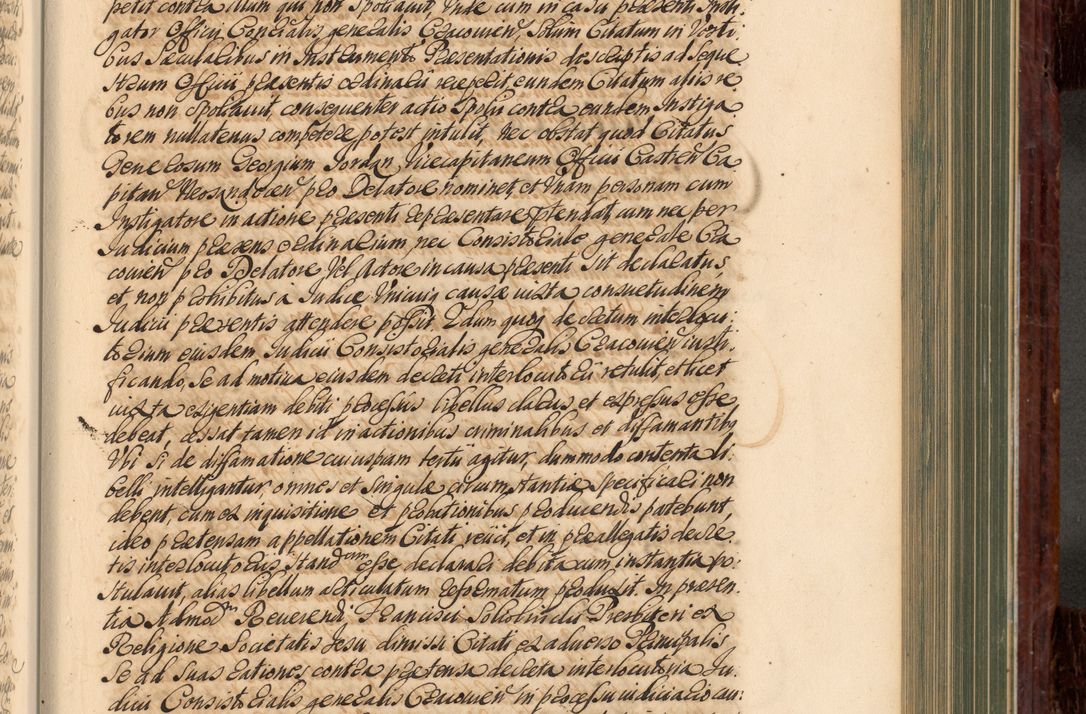 petit contra illum qui non Spoliavit, Unde cum in casu præsenti Insti¬
gator Officii Gñeralis generalis Cracovien, Solum Citatum in Vesti¬
bus Sæcularibus in Instrumento Præsentationis descriptis ad Seque
strum Officii præsentis ordinarii recepit, eundem Citatum aliis re
bus non Spoliavit, consequenter actio Spolii contra eundem Instiga
torem nullatenus competere potest intulit, nec obstat quod Citatus
Generosum Georgium Jordan Vicecapitaneum Officii Castren Ca
pitan pro Delatore nominet, et Unam personam cum
Instigatore in actione præsenti repræsentare prtendat, cum nec per
Judicium præsens ordinarium nec Consistoriale generale Cra
covien pro Delatore Vel Actore in causa præsenti sit declaratus,
et non prohibitus à Judice Unicuiq causæ iuxta consuetudinem
Judicii præsentis attendere possit. Idum quoq decretum interloqu¬
torium eiusdem Judicii Consistorialis generalis Cracovien iusti¬
ficando, Se ad motiva eiusdem decreti interlocutorii retulit, et licet
iuxta exigentiam debiti processus libellus clarus, et expressus esse
debeat, cessat tamen id in actionibus criminalibus et diffamantibq
Ubi si de diffamatione cuiuspiam tertii agitur, dummodo contenta li¬
belli intelligantur, omnes et singulæ circumstantiæ specificari non
debent, cum ex inquisitione et probationibus producendis patebunt,
ideo prætensam appellationem Citati reiici, et in præallegatis decre
tis interlocutoriis Stand esse declarari debita cum instantia po¬
stulavit, alias libellum articulatum reformatum produxit. In præsen¬
tia Admod Reverendi Francisci Presbiteri ex
Religione Societatis Jesu dimissi Citati ex adverso Principalis
Se ad suas rationes, contra prætensa decreta interlocutoria Ju¬
dicii Consistorialis generalis Cracovien in processu iudiciario cau¬